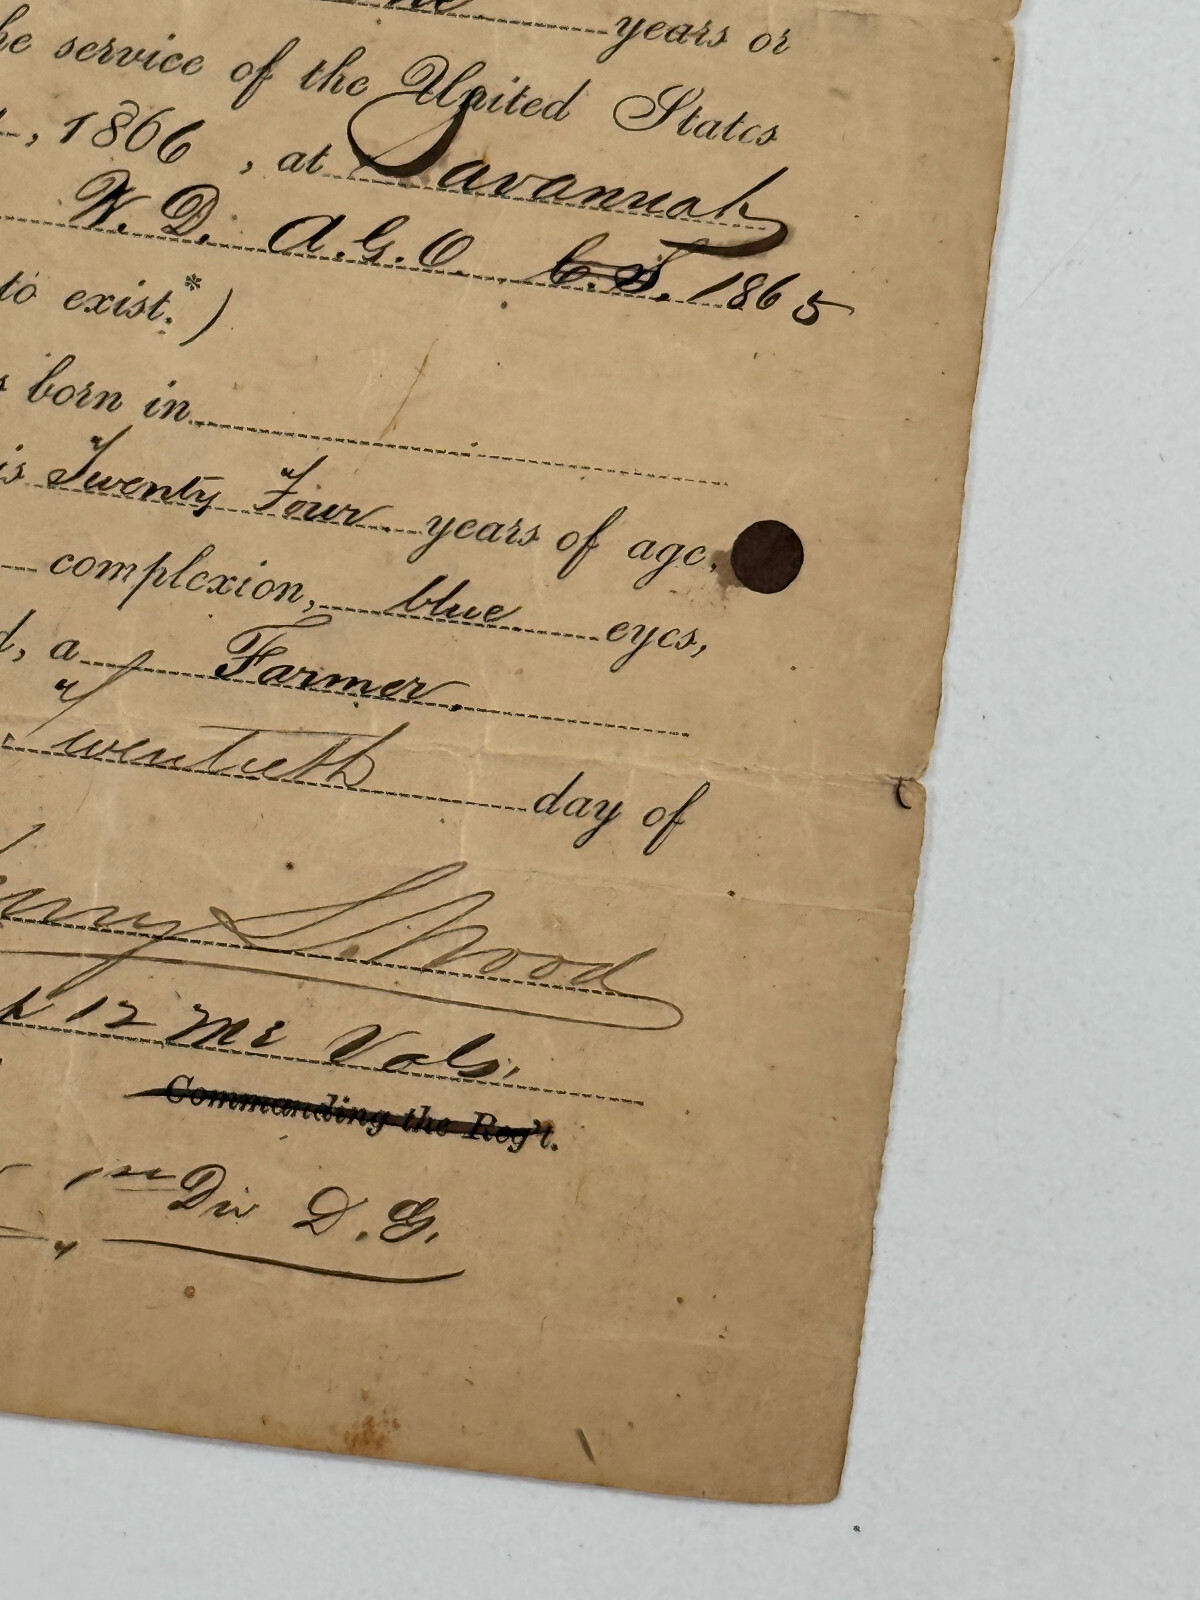 years or
he service of the United States
, 1866, at Savannah
W. D. A. G. O. C. S. 1865
to exist.*)
born in
is Twenty Four years of age,
complexion, blue eyes,
d, a Farmer,
Twentieth day of
S. Wood
12 Me Vols.
Commanding the Reg't.
Div D. G.